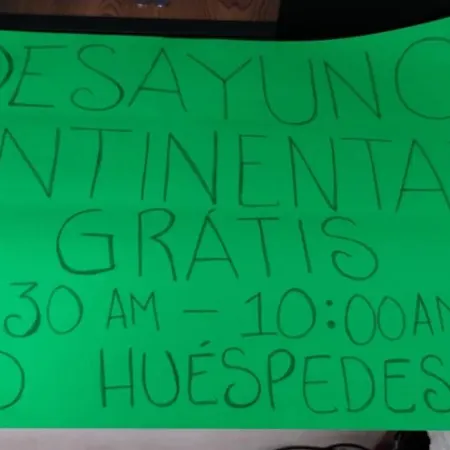 DESAYUNO
NTINENTA
GRÁTIS
30 AM – 10:00 AM
HUÉSPEDES